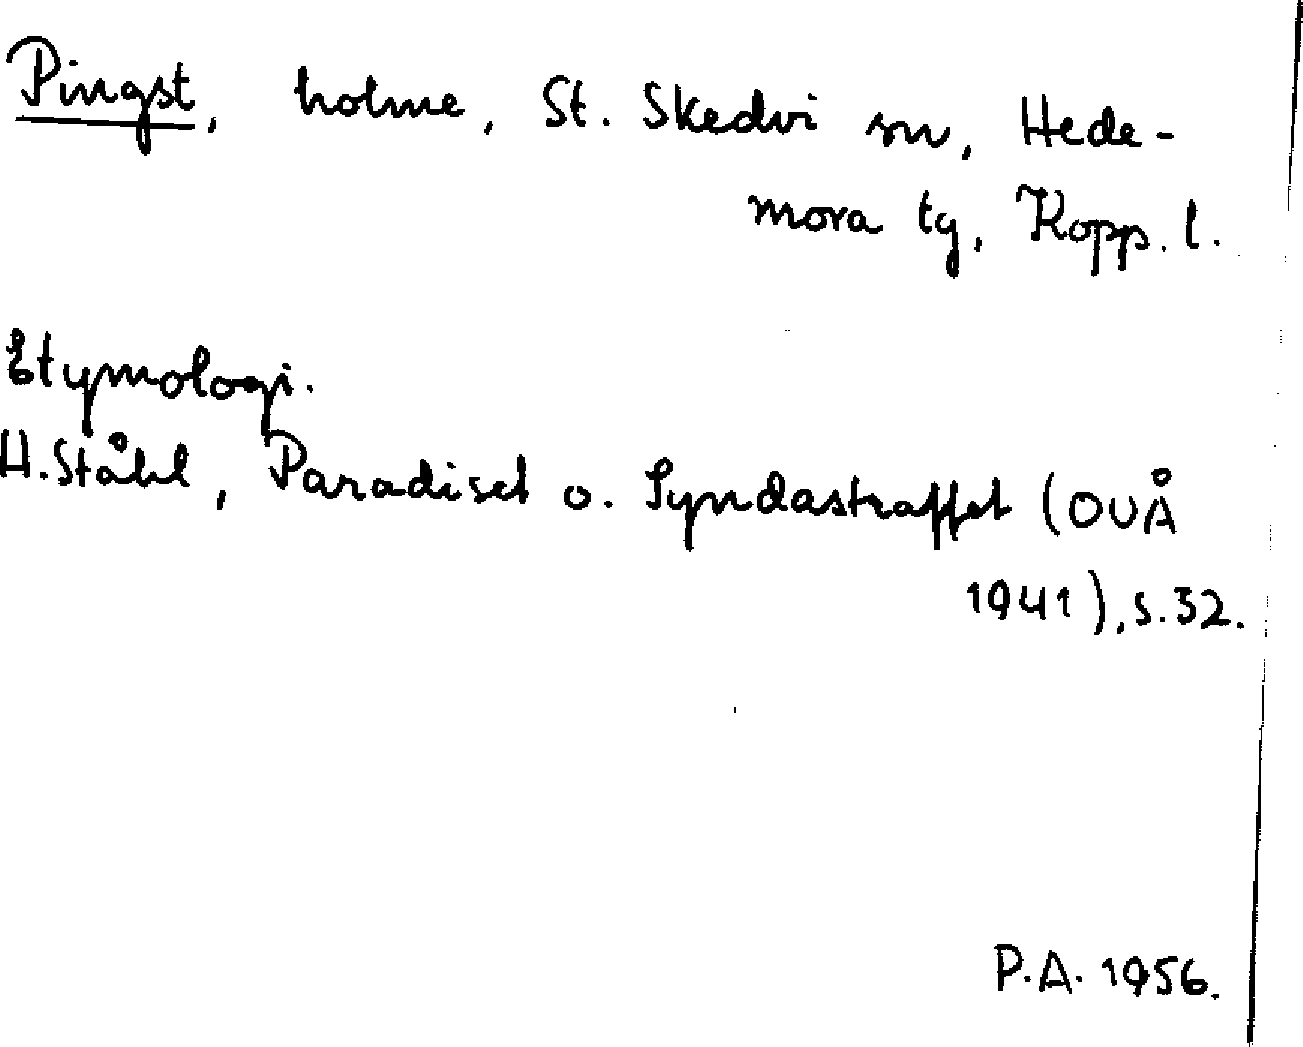 Pingst, holme, St. Skedvi sn, Hede-
mora tg, Kopp. l.
Etymologi.
H. Ståhl, Paradiset o. Syndastraffet (OUÅ
1941), s. 32.
P.A. 1956.